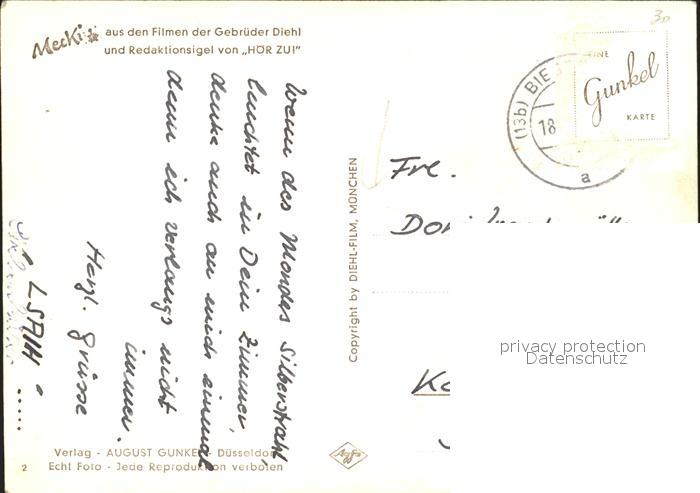 Mecki aus den Filmen der Gebrüder Diehl
und Redaktionsigel von „HÖR ZU!"
Wenn des Mondes Silberstrahl
leuchtet in Dein Zimmer,
denke auch an mich einmal
denn ich verlangs nicht
immer.
Herzl. Grüsse
Verlag - AUGUST GUNKEL - Düsseldorf
Echt Foto - Jede Reproduktion verboten
2
Copyright by DIEHL-FILM, MÜNCHEN
Agfa
30
EINE
Gunkel
KARTE
(13b) BIE
18
a
Fre.
privacy protection
Datenschutz